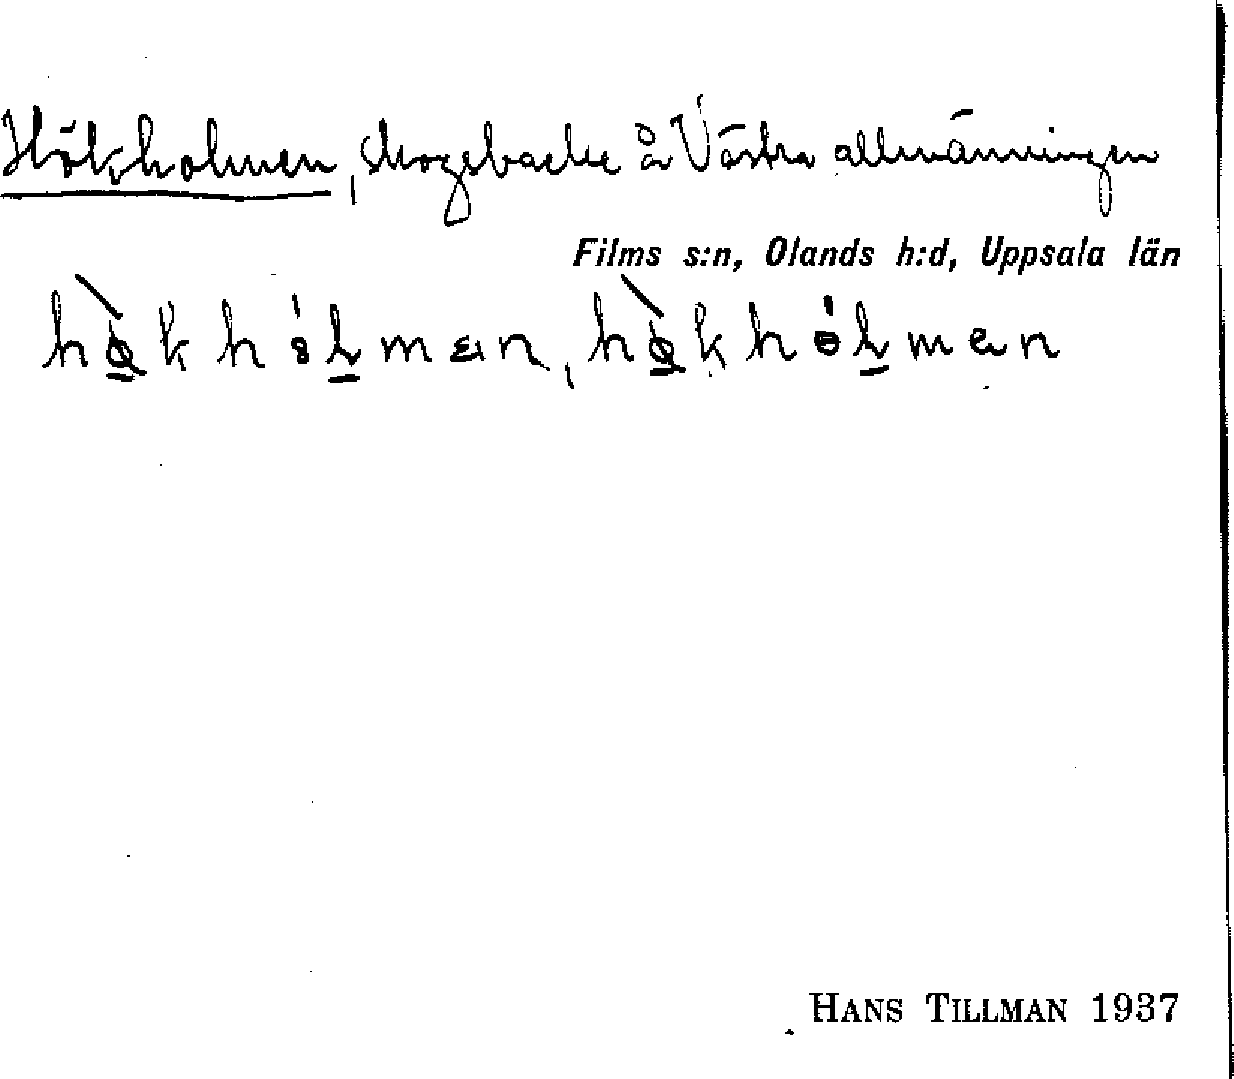 Hökholmen, skogsbacke å Västra allmänningen
Films s:n, Olands h:d, Uppsala län
HANS TILLMAN 1937